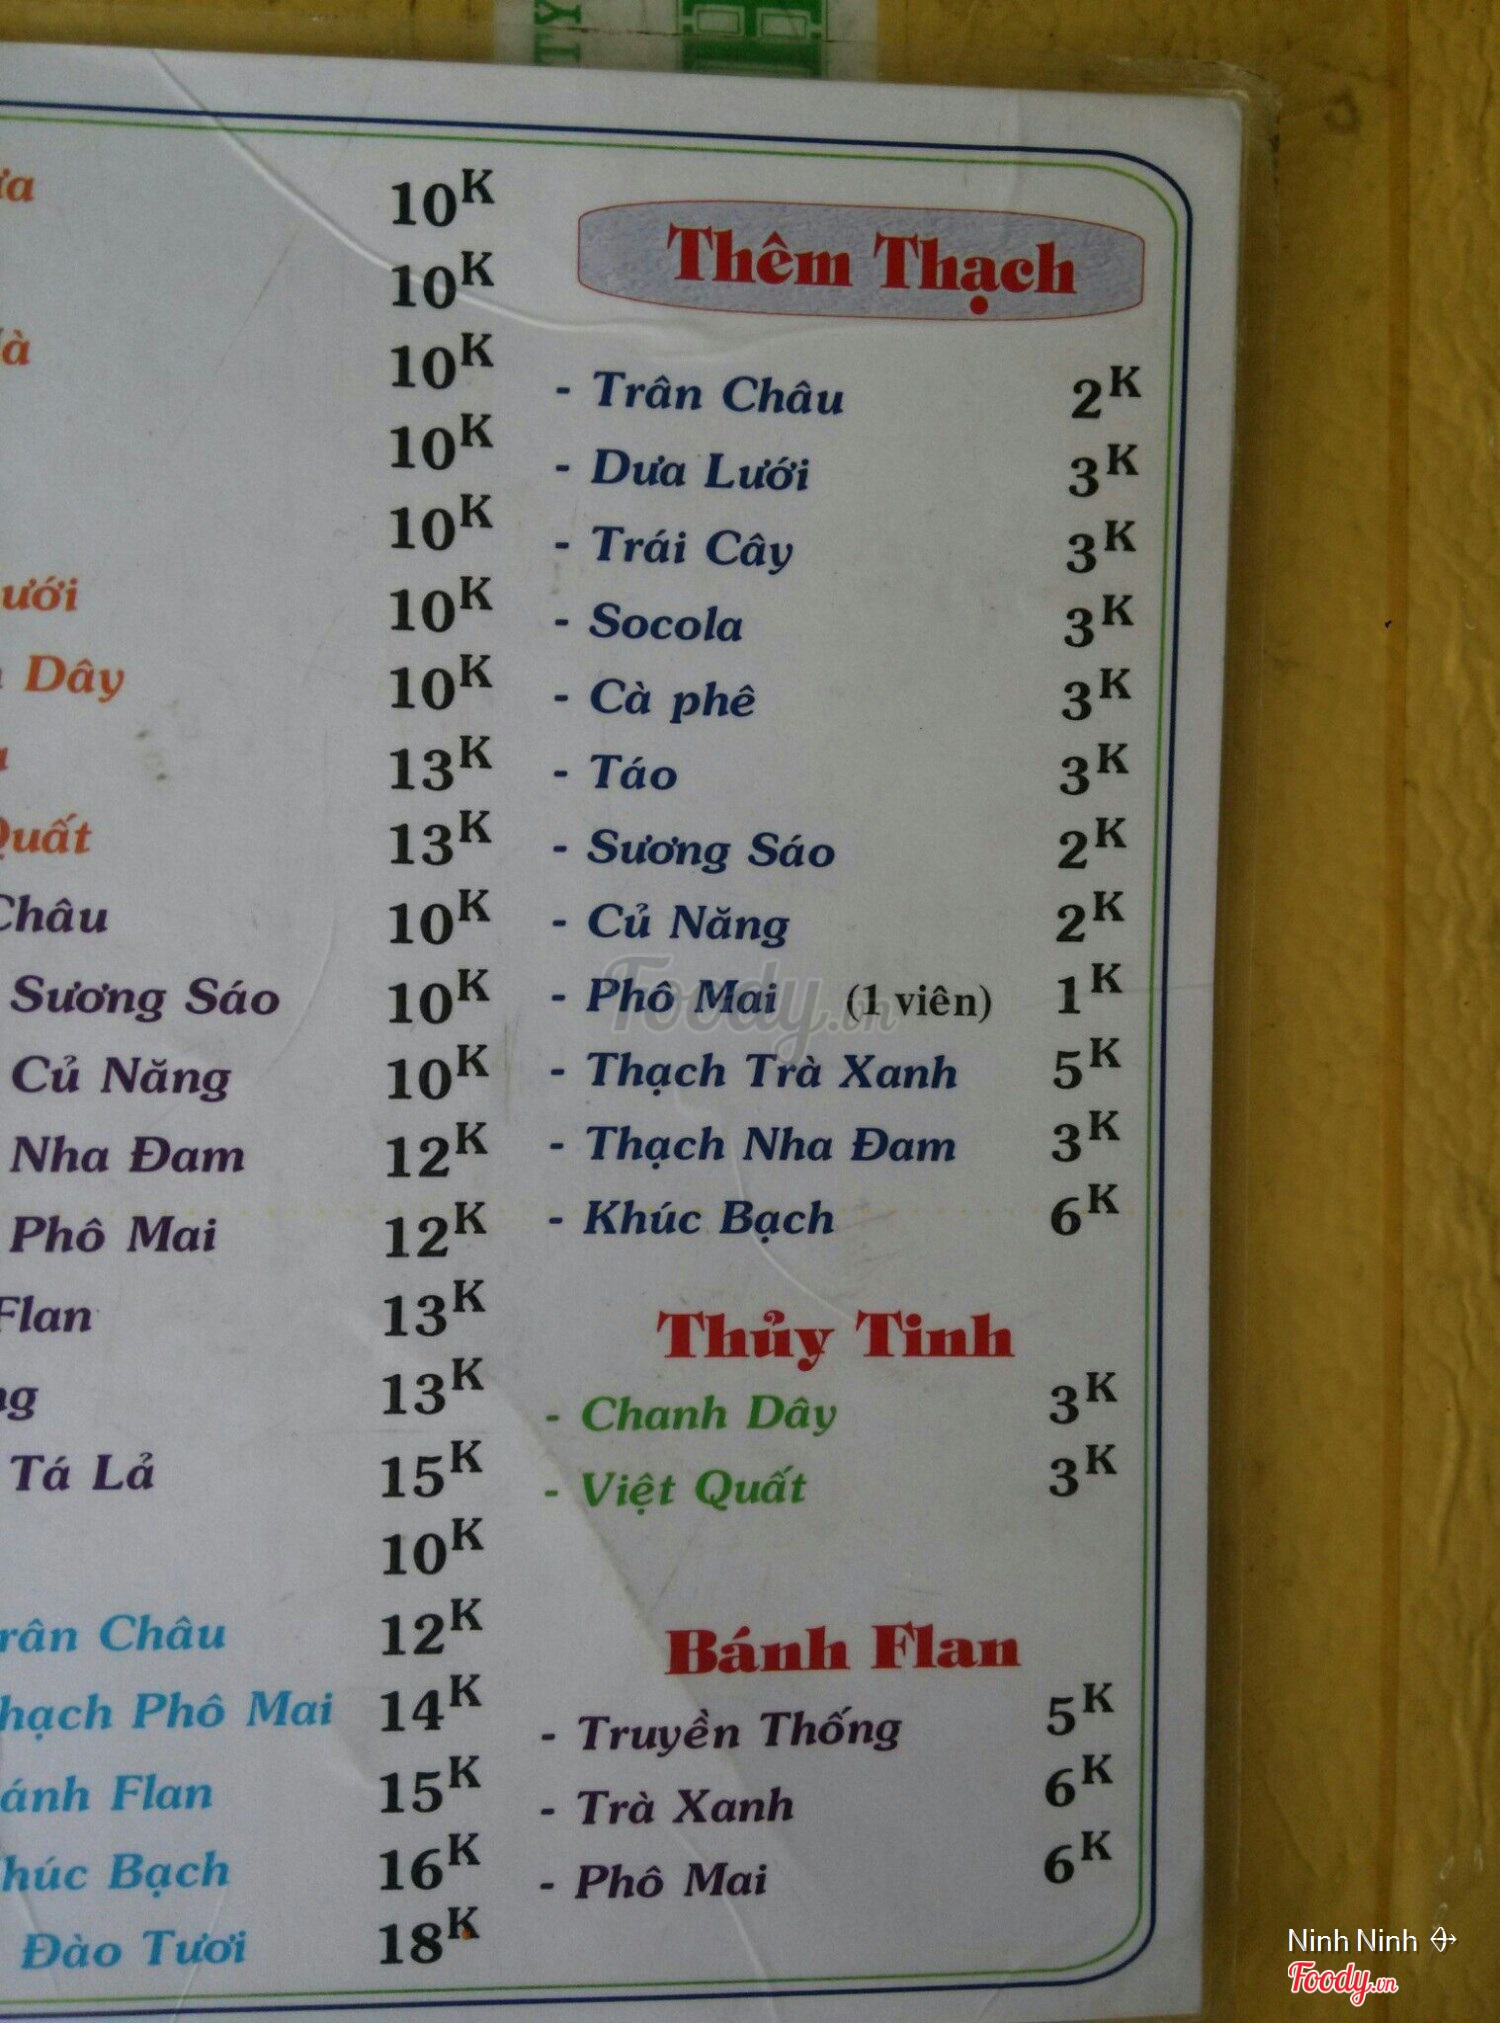 TY
10K
10K
10K
10K
10K
10K
Dây 10K
13K
Quất 13K
Châu 10K
Sương Sáo 10K
Củ Năng 10K
Nha Đam 12K
Phô Mai 12K
Flan 13K
13K
Tá Lả 15K
10K
rân Châu 12K
hạch Phô Mai 14K
ánh Flan 15K
húc Bạch 16K
Đào Tươi 18K
Thêm Thạch
- Trân Châu 2K
- Dưa Lưới 3K
- Trái Cây 3K
- Socola 3K
- Cà phê 3K
- Táo 3K
- Sương Sáo 2K
- Củ Năng 2K
- Phô Mai (1 viên) 1K
- Thạch Trà Xanh 5K
- Thạch Nha Đam 3K
- Khúc Bạch 6K
Thủy Tinh
- Chanh Dây 3K
- Việt Quất 3K
Bánh Flan
- Truyền Thống 5K
- Trà Xanh 6K
- Phô Mai 6K
Foody.vn
Ninh Ninh
Foody.vn